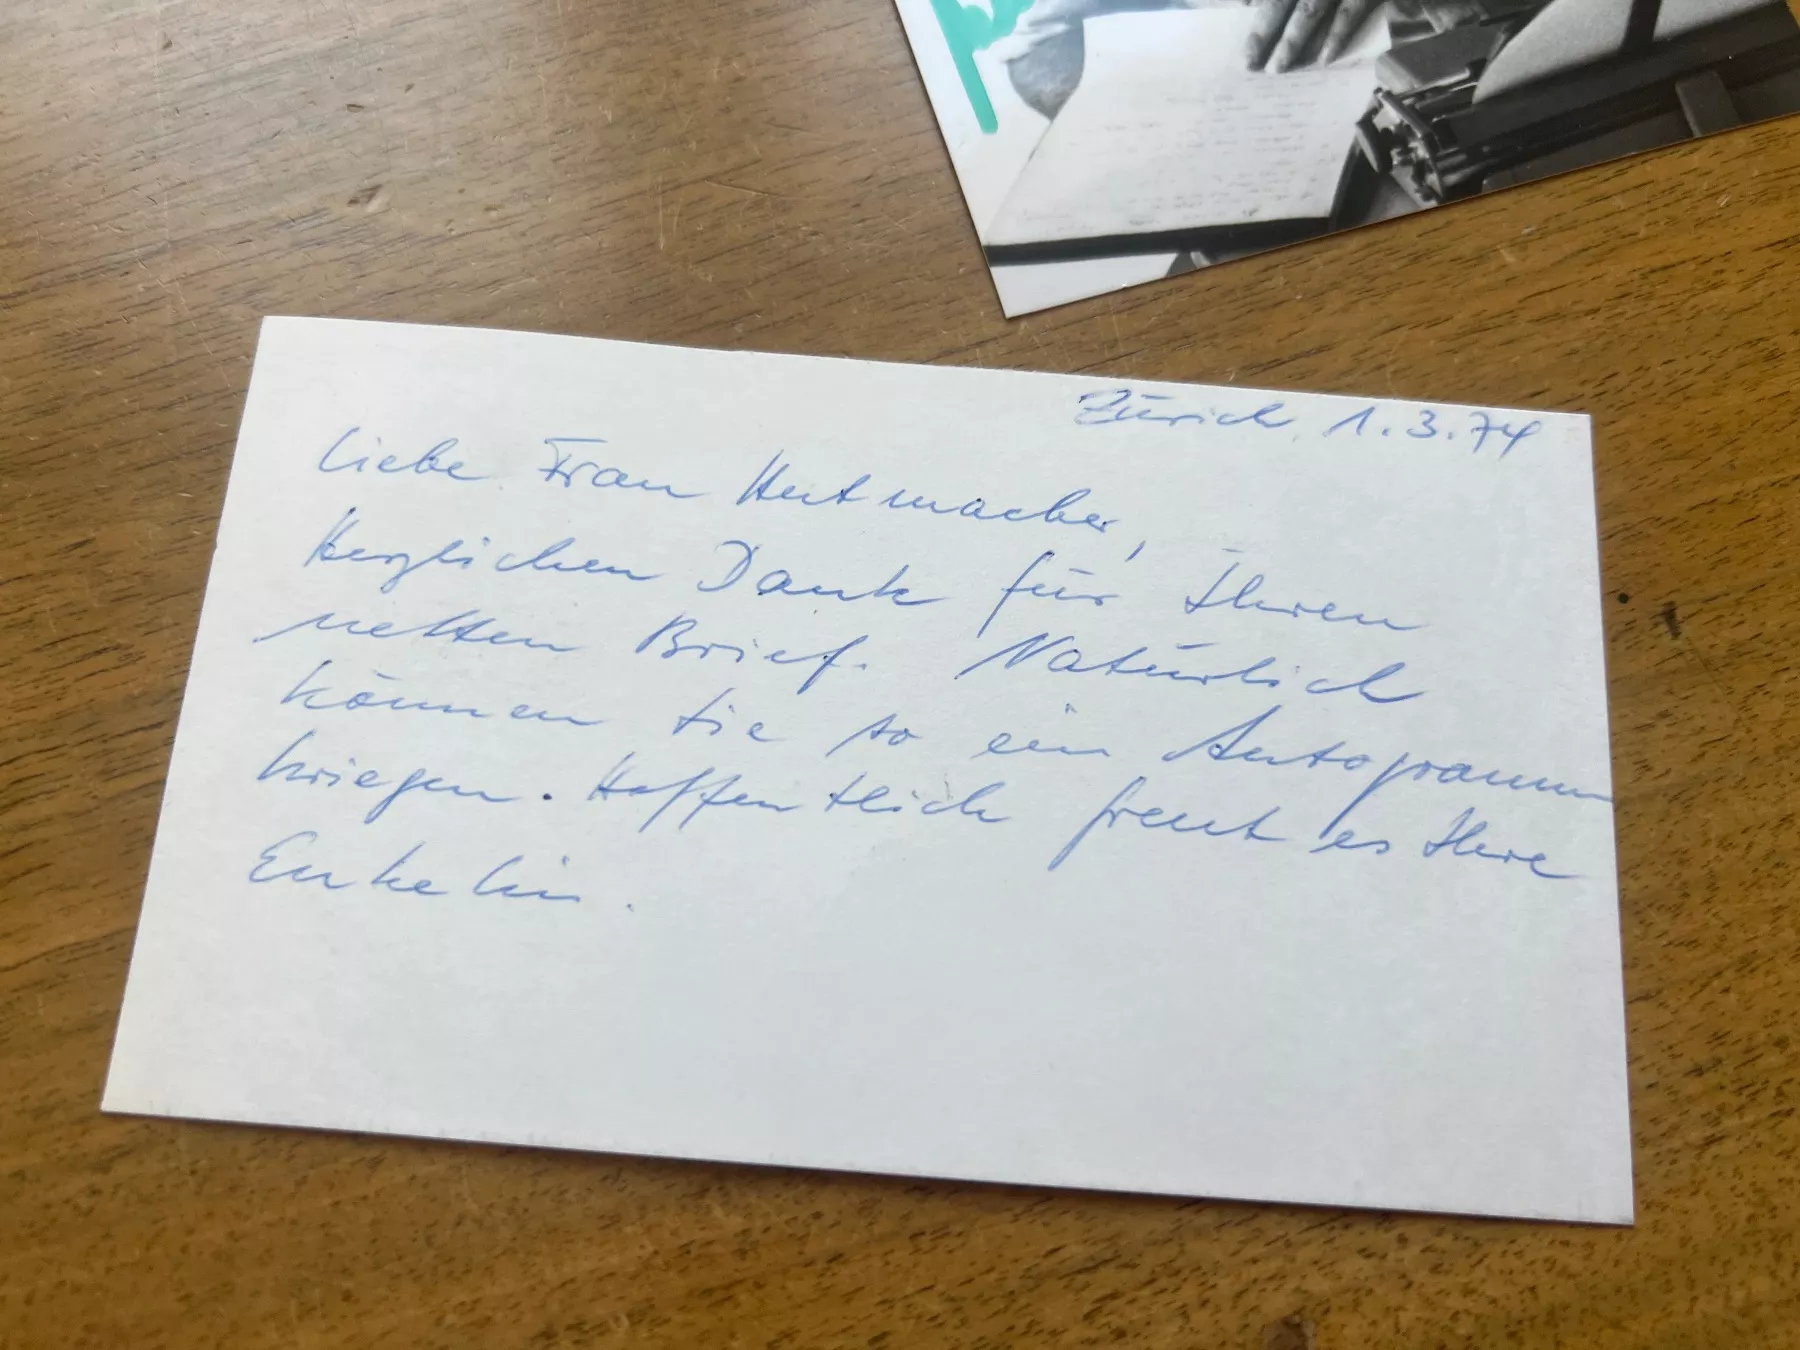 Zürich, 1.3.74
Liebe Frau Hutmacher,
Herzlichen Dank für Ihren
netten Brief. Natürlich
können Sie so ein Autogramm
kriegen. Hoffentlich freut es Ihre
Enkelin.